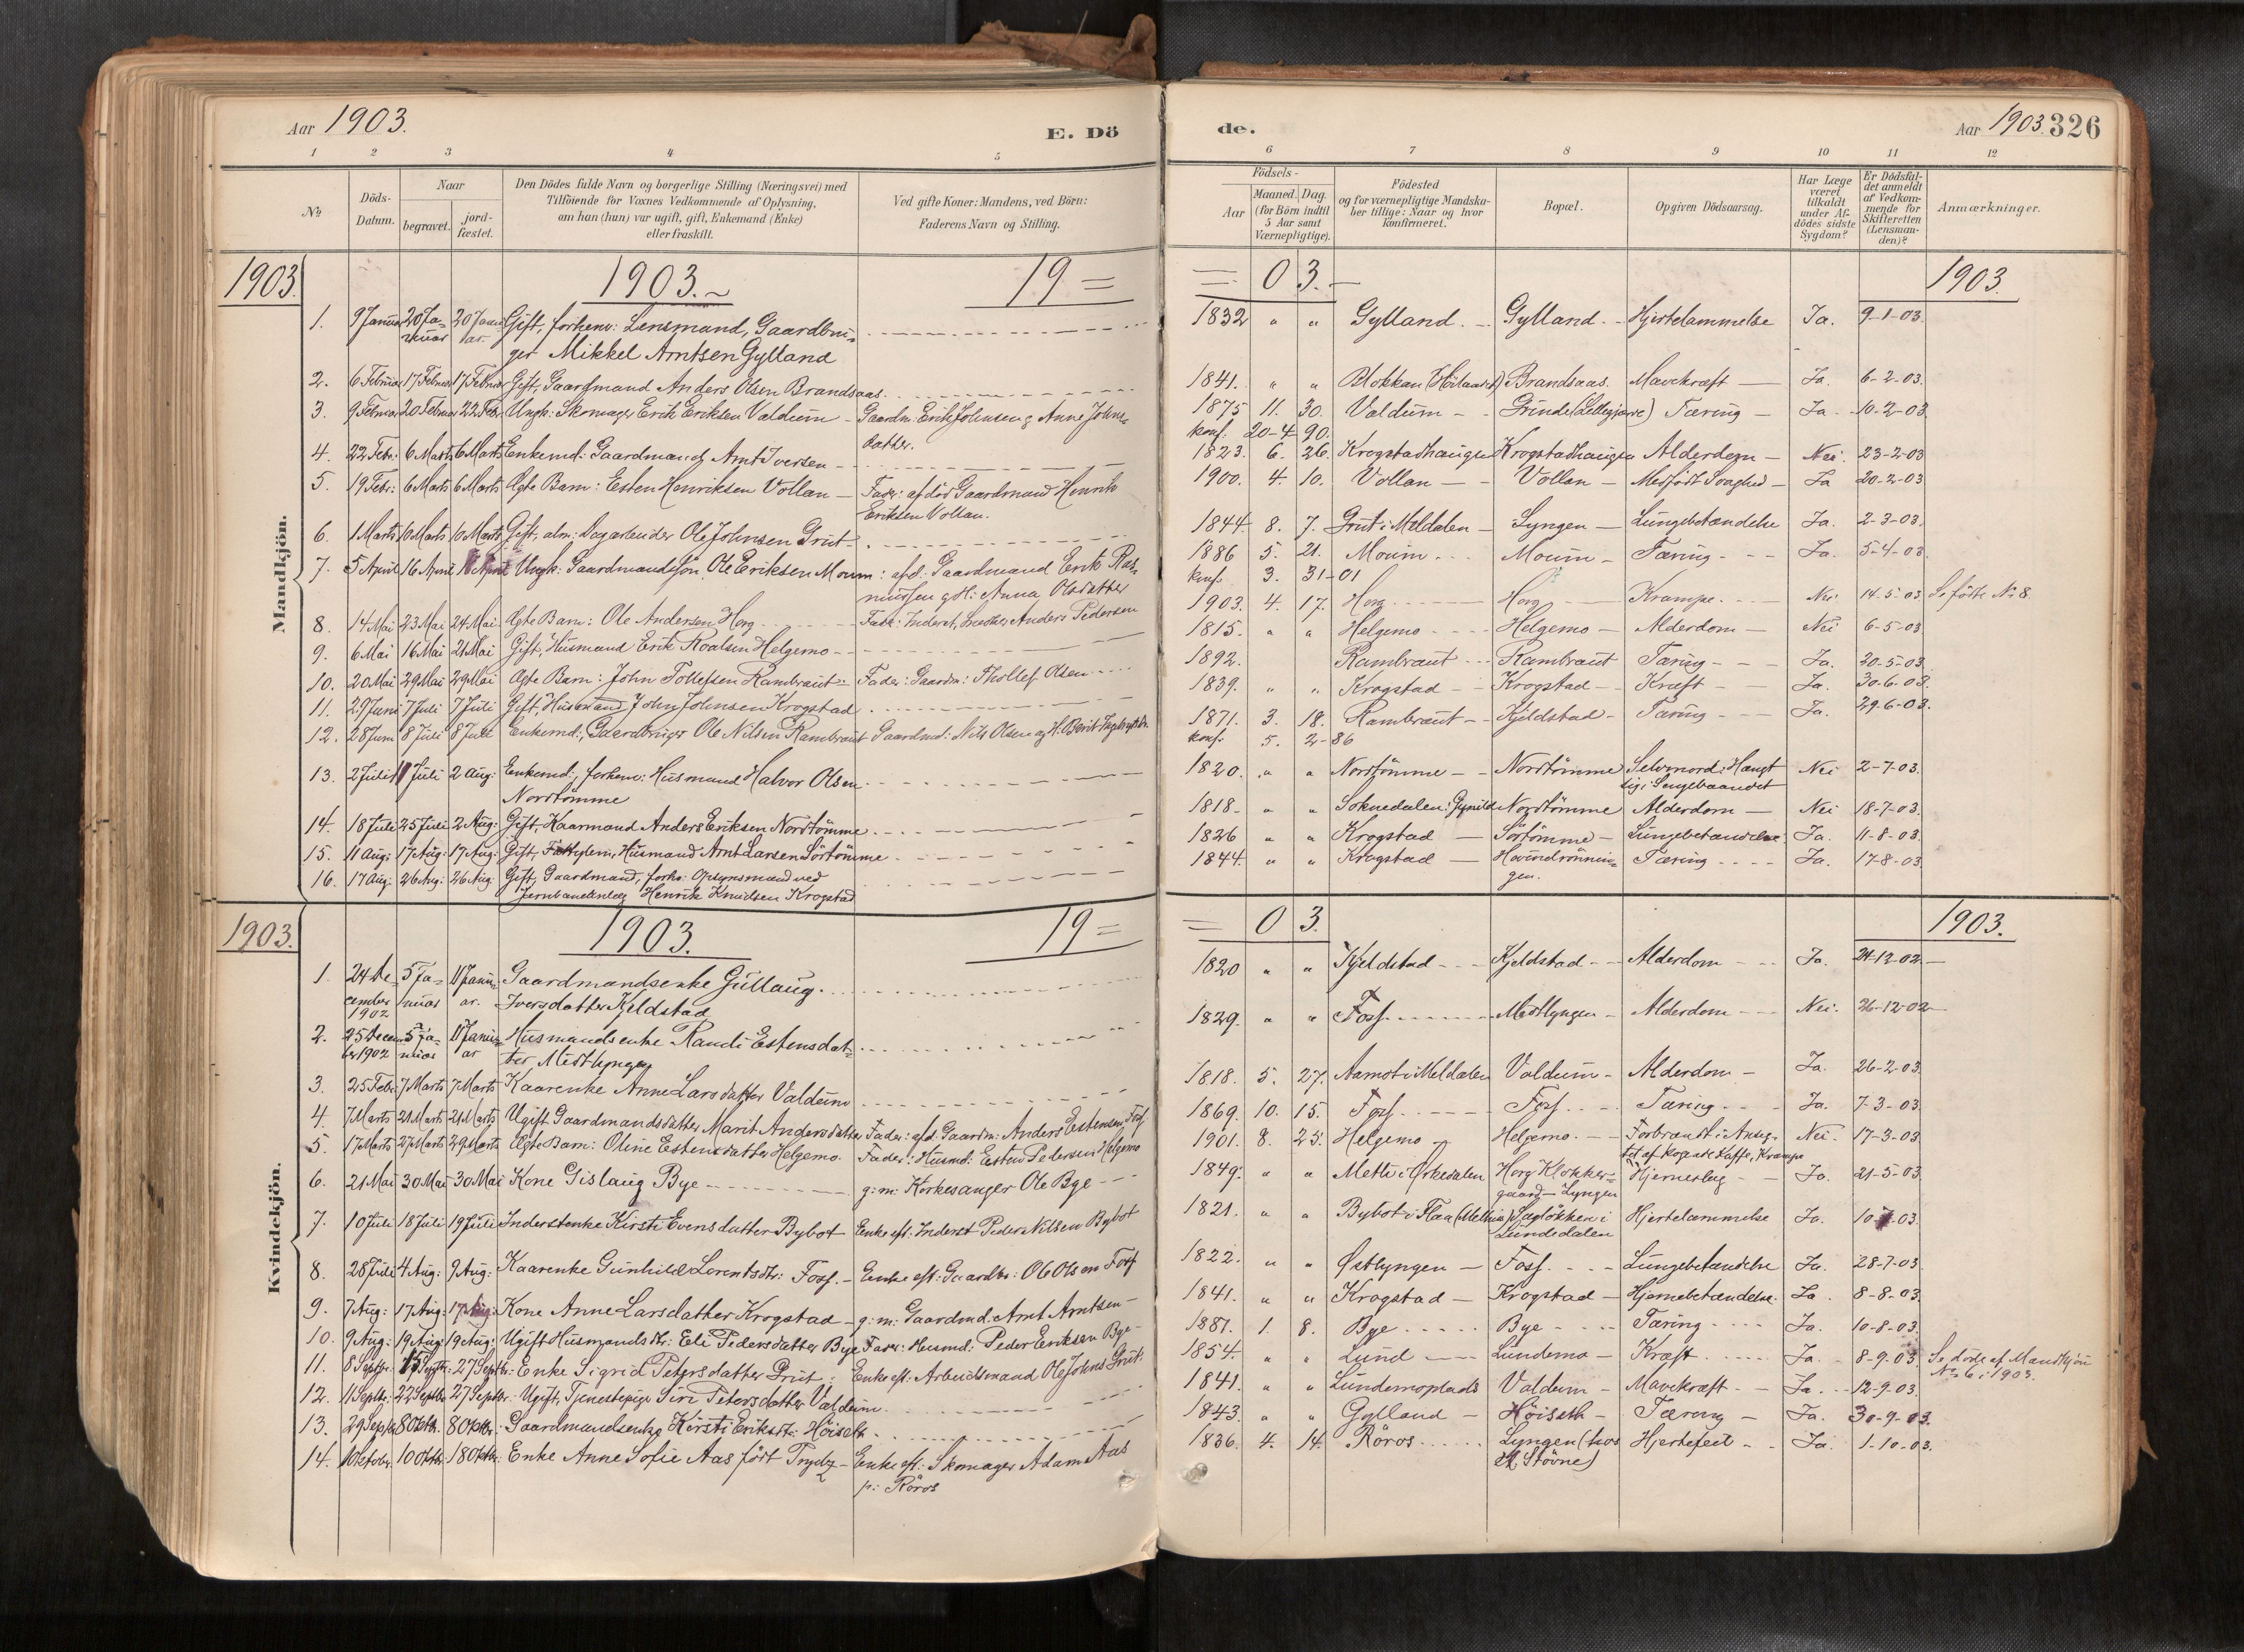 Aar 1903.
E. Dö
1 2 3 4 5
No
Döds-Datum.
Naar
begravet.
jord-fæstet.
Den Dödes fulde Navn og borgerlige Stilling (Næringsvei) med
Tilföiende for Voxnes Vedkommende af Oplysning,
om han (hun) var ugift, gift, Enkemand (Enke)
eller fraskilt.
Ved gifte Koner: Mandens, ved Börn:
Faderens Navn og Stilling.
1903. 1903. 19=
Mandkjön.
1. 9 Januar 20 Ja- 20 Janu Gift, forhenv: Lensmand, Gaardbru-
nuar ar ger Mikkel Arntsen Gylland
2. 6 Februar 17 Februar 17 Februar Gift, Gaardmand Anders Olsen Brandsaas.
3. 9 Februar 20 Februar 22 Febr: Ungk: Skomager Erik Eriksen Valdum - Gaardm: Erik Johnsen g Anne Johns-
datter.
4. 22 Febr: 6 Marts 6 Marts Enkemd: Gaardmand Arnt Iversen -
5. 19 Febr: 6 Marts 6 Marts Ægte Barn: Esten Henriksen Vollan - Fader: afdöd Gaardmand Henrik
Eriksen Vollan.
6. 1 Marts 10 Marts 10 Marts Gift, alm: Dagarbeider Ole Johnsen Grut -
7. 5 April 16 April 16 April Ungk: Gaardmandssön Ole Eriksen Moum: afd: Gaardmand Erik Ras-
mussen g H: Anna Olsdatter
8. 14 Mai 23 Mai 24 Mai Ægte Barn: Ole Andersen Horg Fader: Inderst, Snedker Anders Pedersen
9. 6 Mai 16 Mai 21 Mai Gift, Husmand Erik Roalsen Helgemo -
10. 20 Mai 29 Mai 29 Mai Ægte Barn: John Tollefsen Rambraut - Fader: Gaardm: Thollef Olsen
11. 29 Juni 7 Juli 7 Juli Gift, Husmand John Johnsen Krogstad
12. 28 Juni 8 Juli 8 Juli Enkemd:, Gaardbruger Ole Nilsen Rambraut Gaardmd: Nils Olsen og H. Berit Ingebrigtsdtr.
13. 2 Juli 11 Juli 2 Aug: Enkemd:, forhenv: Husmand Halvor Olsen
Nordtömme
14. 18 Juli 25 Juli 2 Aug: Gift, Kaarmand Anders Eriksen Nordtömme
15. 11 Aug: 17 Aug: 17 Aug: Gift, Fattiglem, Husmand Arnt Larsen Sörtömme
16. 17 Aug: 26 Aug: 26 Aug: Gift, Gaardmand, forhv: Opsynsmand ved
Jernbaneanlæg Henrik Knudsen Krogstad
1903. 1903. 19=
Kvindekjön.
1. 24 De- 5 Ja- 11 Janu- Gaardmandsenke Gullaug
cember nuar ar. Iversdatter Kjeldstad
1902
2. 25 Decem- 5 Ja- 11 Janu- Husmandsenke Randi Estensdat-
br 1902 nuar ar ter Midtlyngen
3. 25 Febr: 7 Marts 7 Marts Kaarenke Anne Larsdatter Valdum
4. 7 Marts 21 Marts 21 Marts Ugift Gaardmandsdatter Marit Andersdatter Fader: afd: Gaardm: Anders Estensen Foss
5. 17 Marts 27 Marts 29 Marts Ægte Barn: Oline Estensdatter Helgemo. Fader: Husmd: Esten Pedersen Helgemo
6. 21 Mai 30 Mai 30 Mai Kone Gislaug Bye g: m: Kirkesanger Ole Bye
7. 10 Juli 18 Juli 19 Juli Inderstenke Kirsti Evensdatter Bybot Enke eft: Inderst Peder Nilsen Bybot
8. 28 Juli 4 Aug: 9 Aug: Kaarenke Gunhild Lorentsdtr: Foss. - Enke eft: Gaardbr: Ole Olsen Foss
9. 7 Aug: 17 Aug: 17 Aug: Kone Anne Larsdatter Krogstad - g: m: Gaardmd. Arnt Arntsen -
10. 9 Aug: 19 Aug: 19 Aug: Ugift Husmandsdtr: Eli Pedersdatter Bye Fader: Husmd: Peder Eriksen Bye -
11. 8 Septbr. 15 Septbr: 27 Septbr: Enke Sigrid Petersdatter Grut: Enke eft: Arbeidsmand Ole Johns: Grut:
12. 11 Septbr: 22 Septbr 27 Septbr. Ugift, Tjenestepige Siri Petersdatter Valdum
13. 29 Septbr 8 Oktbr. 8 Oktbr. Gaardmandsenke Kirsti Eriksdtr: Höiseth
14. 1 Oktober 10 Oktbr 18 Oktbr. Enke Anne Sofie Aas födt Trydz - Enke eft: Skomager Adam Aas
p: Röros
de.
Aar 1903. 326
6 7 8 9 10 11 12
Födsels-
Aar
Maaned. Dag.
(for Börn indtil
5 Aar samt
Værnepligtige).
Födested
og for værnepligtige Mandska-
ber tillige: Naar og hvor
konfirmeret.
Bopæl.
Opgiven Dödsaarsag.
Har Læge
været
tilkaldt
under Af-
dödes sidste
Sygdom?
Er Dödsfal-
det anmeldt
af Vedkom-
mende for
Skifteretten
(Lensman-
den)?
Anmærkninger.
= 0 3. - 1903.
1832 " " Gylland. - Gylland. - Hjertelammelse Ja. 9-1-03.
1841. " " Blokkan (Hölandet) Brandsaas. Mavekræft - Ja. 6-2-03.
1875 11. 30. Valdum - - Grinde (Lillegjerde) Tæring - Ja. 10-2-03.
konf. 20-4 90.
1823. 6. 26. Krogstadhaugen Krogstadhaugen Alderdom - Nei. 23-2-03
1900. 4. 10. Vollan - - Vollan - Medfödt Svaghed - Ja 20-2-03
1844 8. 7. Grut i Meldalen - Lyngen - Lungebetændelse Ja. 2-3-03.
1886 5. 21. Moum Moum - Tæring - - - Ja. 5-4-03.
konf. 3. 31-01
1903. 4. 17. Horg Horg Krampe. Nei 14-5-03 Se födte No 8.
1815. " " Helgemo Helgemo - Alderdom - Nei 6-5-03
1892. Rambraut Rambraut Tæring - - Ja. 20-5-03.
1839. " " Krogstad - - Krogstad - - Kræft - Ja. 30-6-03.
1871. 3. 18. Rambraut - - Kjeldstad - Tæring - Ja. 29-6-03.
konf. 5. 2-86
1820. " " Nordtömme - - Nordtömme Selvmord: Hængt Nei 2-7-03.
sig i Sengebaandet
1818- " " Soknedalen: Gynild Nordtömme Alderdom - Nei 18-7-03.
1826 " " Krogstad - Sörtömme - Lungebetændelse. Ja. 11-8-03.
1844. " " Krogstad - Hovindrönnin- Tæring Ja. 17-8-03
gen.
= 0 3. 1903.
1820 " " Kjeldstad - - Kjeldstad - - Alderdom Ja. 24-12-02 -
1829. " " Foss. Midtlyngen - Alderdom - - Nei. 26-12-02 -
1818. 5. 27. Aamot i Meldalen Valdum - Alderdom - Ja. 26-2-03.
1869. 10. 15. Foss. Foss. Tæring Ja. 7-3-03.
1901. 8. 25. Helgemo - Helgemo. - - Forbrændt i Ansig- Nei. 17-3-03.
tet af kogende Kaffe, Krampe
1849. " " Metli i Orkedalen Horg Klokker- Hjerneslag - Ja. 21-5-03.
gaard - Lyngen
1821. " " Bybot i Flaa (Melhus) Sagløkken i Hjertelammelse Ja. 10-7-03.
Lundedalen
1822. " " Østlyngen - Foss. Lungebetændelse Ja. 28-7-03.
1841. " " Krogstad - Krogstad - Hjernebetændelse. Ja. 8-8-03.
1881. 1. 8. Bye Bye Tæring Ja. 10-8-03.
1854. " " Lund Lundemo - Kræft. Ja. 8-9-03. Se döde af Mandkjön
No 6 i 1903.
1841. " " Lundemoplads Valdum - Mavekræft - - Ja. 12-9-03.
1843. " " Gylland - Höiseth - Tæring - Ja. 30-9-03.
1836. 4. 14. Röros Lyngen (hos Hjertefeil - - Ja. 1-10-03.
Stövne)